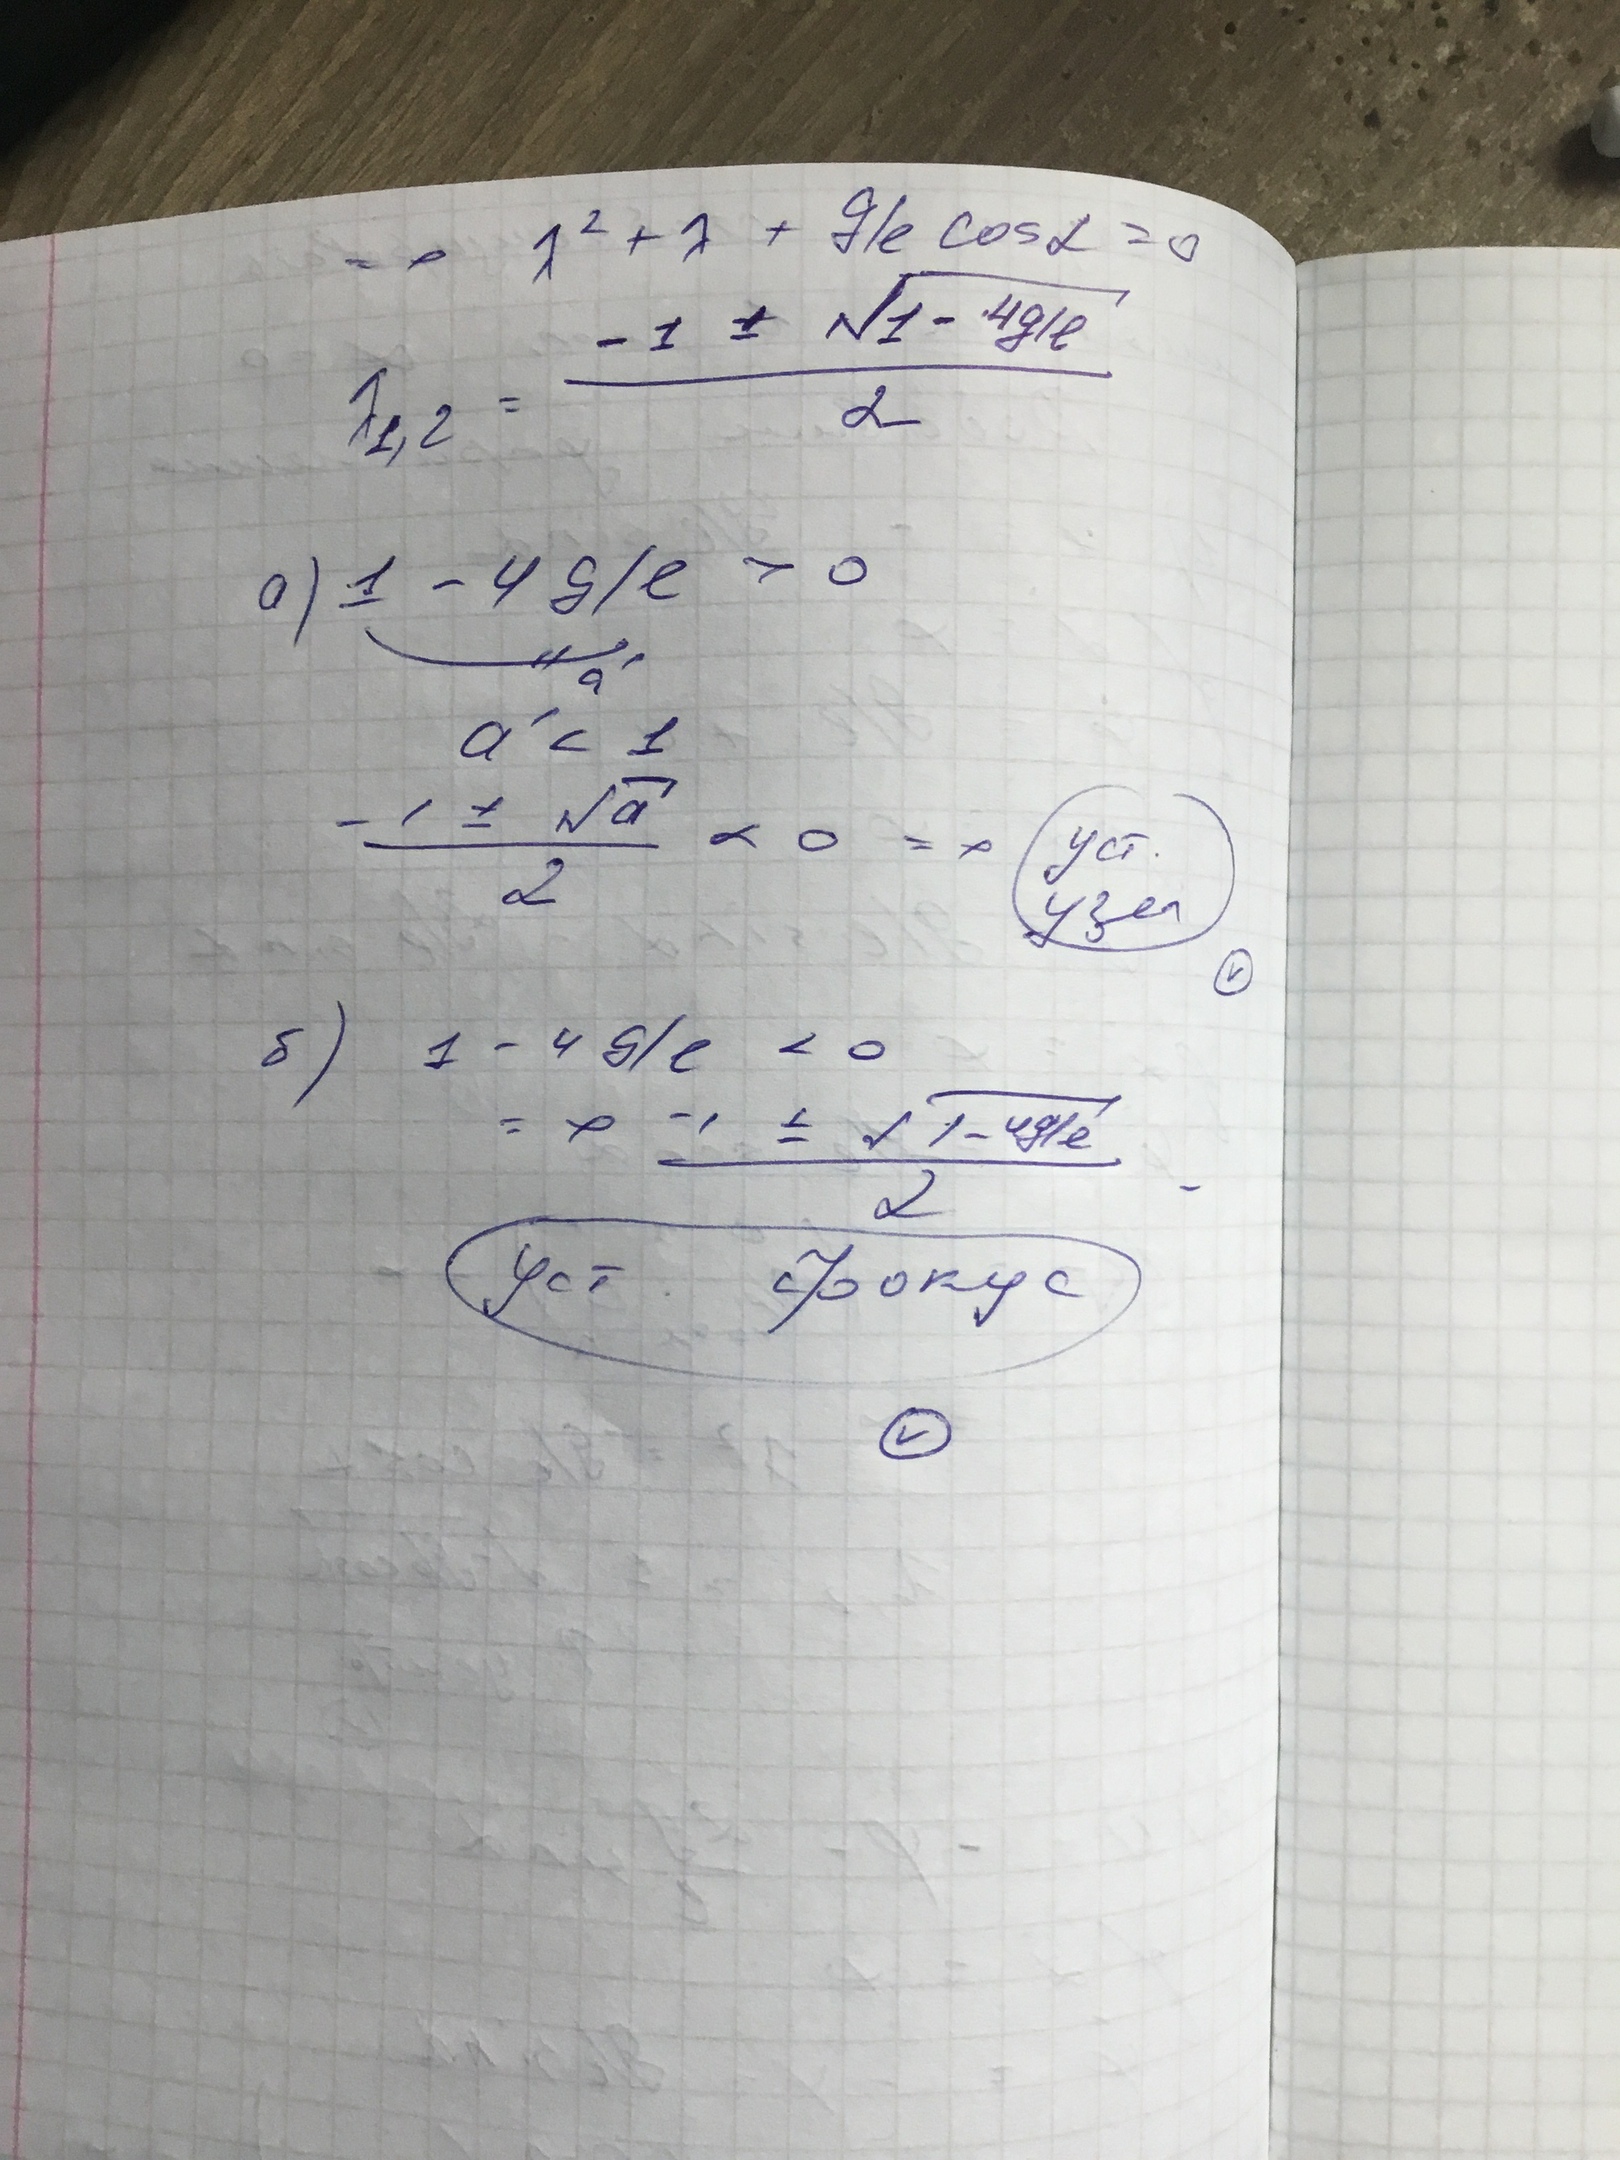 => λ² + λ + g/e cosα = 0
λ₁,₂ = (-1 ± √(1 - 4g/e)) / 2
а) 1 - 4 g/e > 0
"a'
a' < 1
(-1 ± √a') / 2 < 0 => уст.
узел
б) 1 - 4 g/e < 0
=> (-1 ± √(1 - 4g/e)) / 2 -
уст. фокус